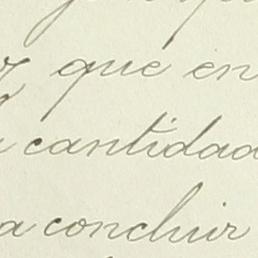 que en
cantidad
a concluir